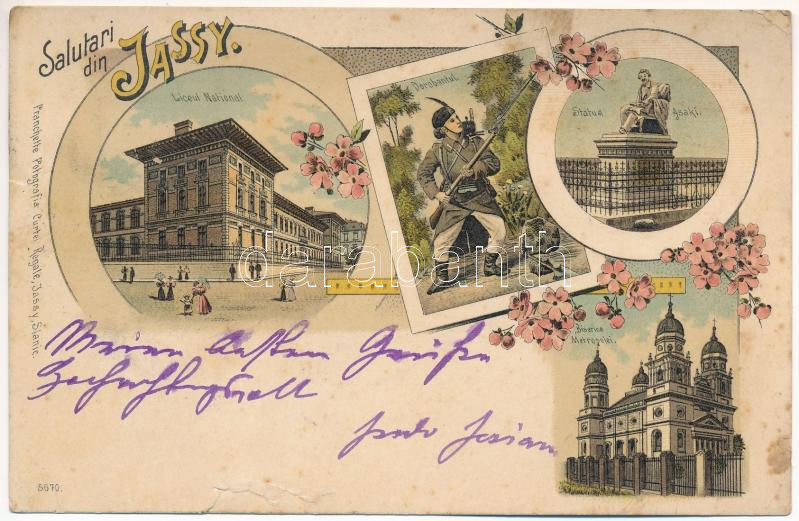 Salutari
din
JASSY.
Liceul National
Dorobantul.
Statua Asaki.
Biserica
Metropoliei.
Franchette Fotografia Curtei Regale, Jassy, Slanic.
Meinen besten Grüße
Hochachtungsvoll
5670.
darabanth